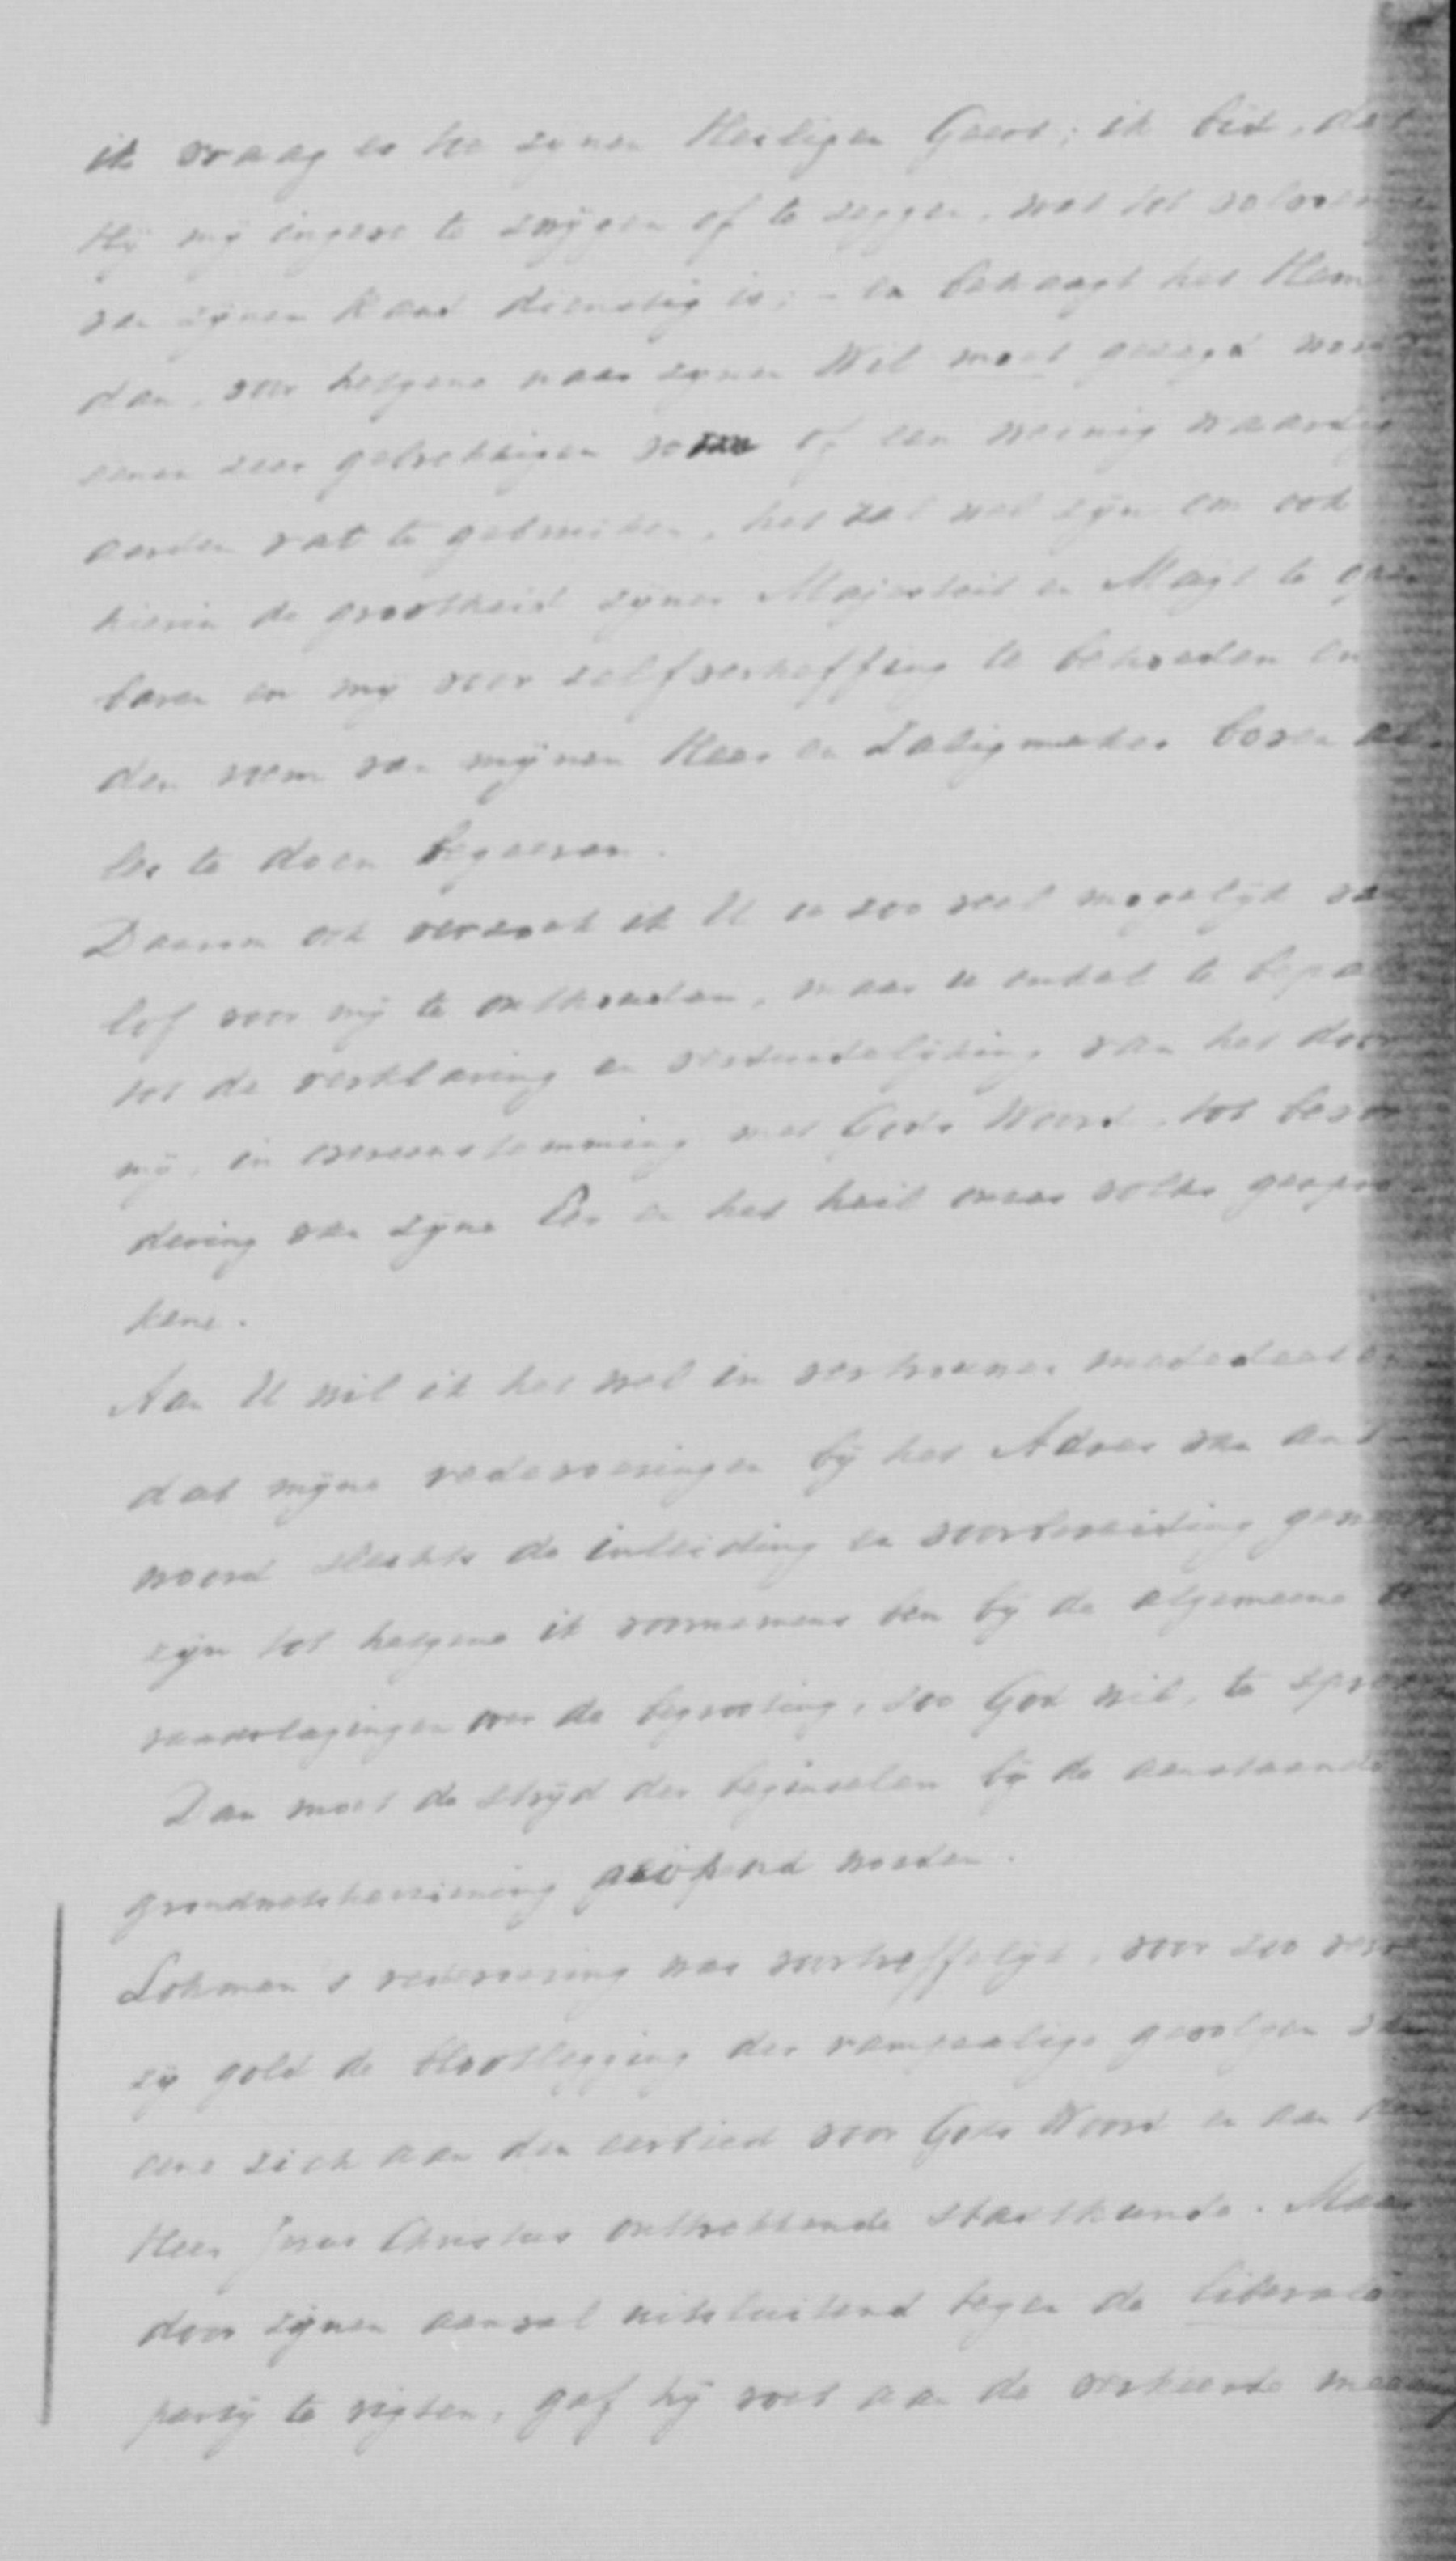 ik vraag er toe zynen Heiligen Geest; ik bid, dat
Hij mij ingeve te zwijgen of te zeggen, wat tot
van zijnen Raad dienstig is; – en behaagt het Hem
dan, voor hetgene naar zijnen Wil moet gezegd
eenen zeer gebrekkigen vorm of een weinig waardig
aarden vat te gebruiken, het zal wel zijn om ook
hierin de grootheid zijner Majesteit en Magt te
baren en mij voor zelfverheffing te behoeden en
den roem van mijnen Heer en Zaligmaker boven al
les te doen begeeren.
Daarom ook verzoek ik U u zoo veel mogelijk van
lof voor mij te onthouden, maar u enkel te
tot de verklaring en verduidelijking van het door
mij, in overeenstemming met Gods Woord, tot bevor
dering van zijne Eer en het heil onzes volks gespro
kene.
Aan U wil ik het wel in vertrouwen mededeelen
dat mijne redevoeringen bij het Adres van ant
woord slechts de inleiding en voorbereiding
zijn tot hetgene ik voornemens ben bij de algemeene be
raadslagingen over de begrooting, zoo God wil, te
Dan moet de strijd der beginselen bij de aanstaande
grondwetsherziening geöpend worden.
Lohman's redevoering was voortreffelijk, voor zoo
zij gold de blootlegging der rampzalige gevolgen van
eene zich aan den eerbied voor Gods Woord en aan den
Heer Jezus Christus onttrekkende staatkunde. Maar
door zijnen aanval uitsluitend tegen de liberale
partij te rigten, gaf hij voet aan de verkeerde